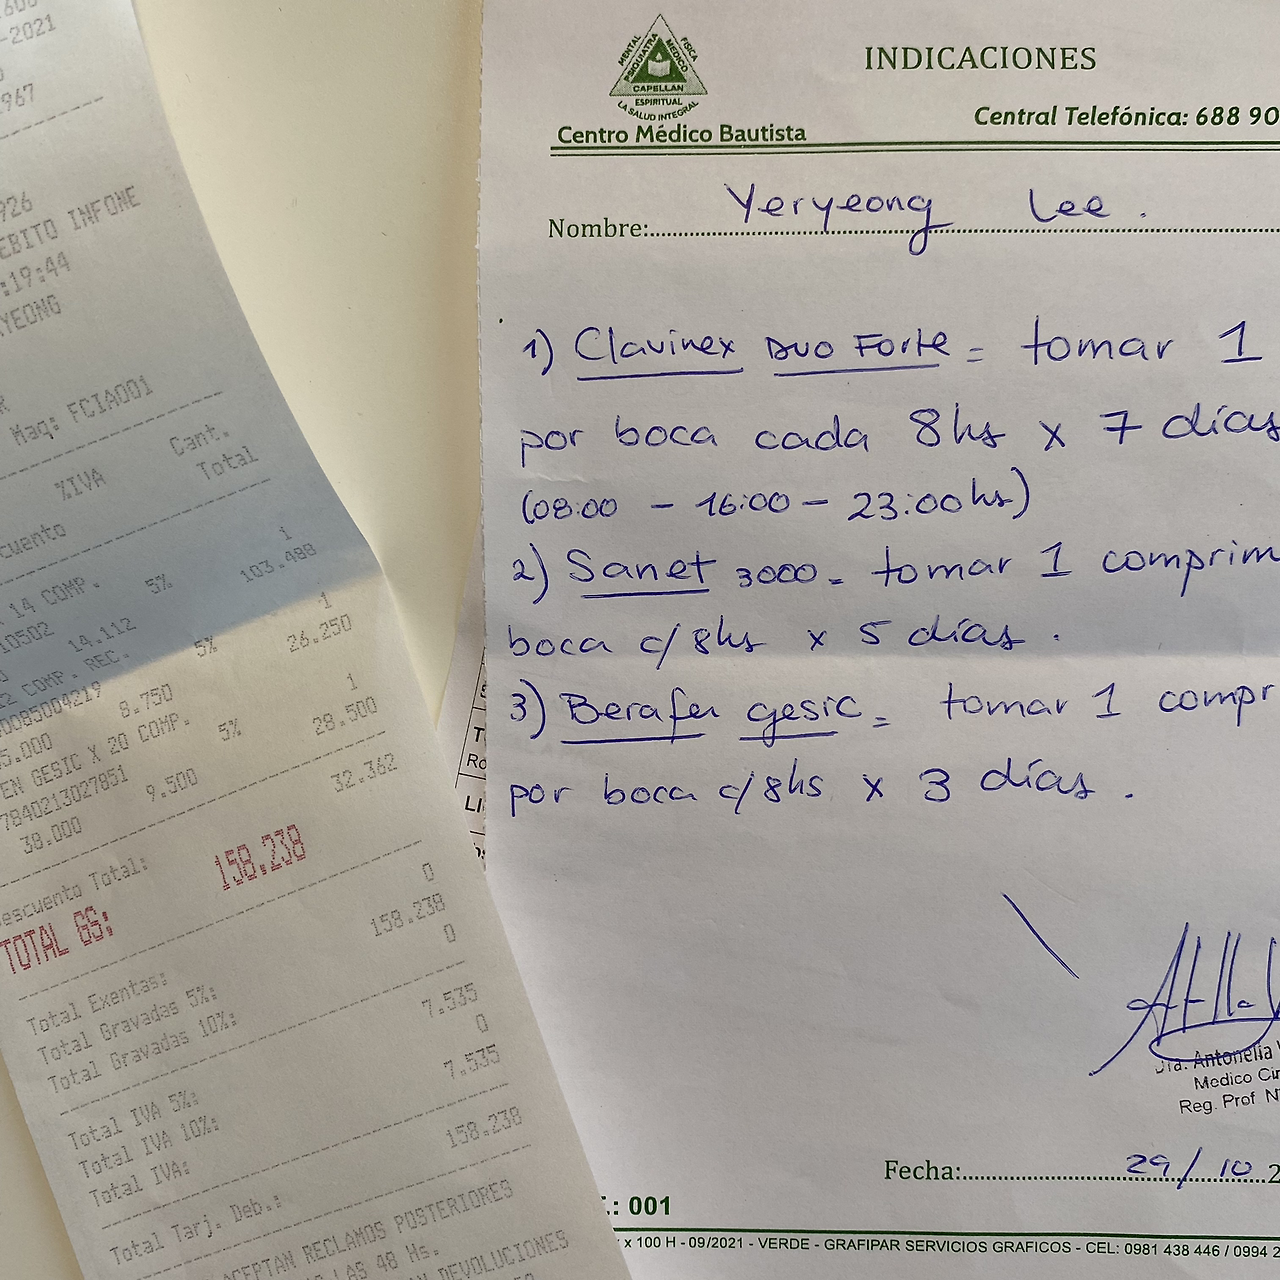 -2021
967
926
EBITO INFONE
:19:44
YEONG
R
Maq: FCIA001
Cant.
%IVA Total
cuento
1
14 COMP. 5% 103.488
10502 14.112
1
2 COMP. REC. 5% 26.250
0085004219 8.750
5.000
1
EN GESIC X 20 COMP. 5% 28.500
7840213027851 9.500
38.000
escuento Total: 32.362
TOTAL GS: 158.238
Total Exentas: 0
Total Gravadas 5%: 158.238
Total Gravadas 10%: 0
Total IVA 5%: 7.535
Total IVA 10%: 0
Total IVA: 7.535
Total Tarj. Deb.: 158.238
ACEPTAN RECLAMOS POSTERIORES
LAS 48 Hs.
DEVOLUCIONES
MENTAL
FISICA
PSIQUIATRA
MEDICO
CAPELLAN
ESPIRITUAL
LA SALUD INTEGRAL
Centro Médico Bautista
INDICACIONES
Central Telefónica: 688 90
Nombre: Yeryeong Lee.
1) Clavinex DUO Forte = tomar 1
por boca cada 8hs x 7 días
(08:00 - 16:00 - 23:00hs)
2) Sanet 3000 = tomar 1 comprim
boca c/8hs x 5 días.
3) Berafen gesic = tomar 1 compr
por boca c/8hs x 3 días.
Dra. Antonella
Medico Cir
Reg. Prof N
Fecha: 29/10 2
.: 001
x 100 H - 09/2021 - VERDE - GRAFIPAR SERVICIOS GRAFICOS - CEL: 0981 438 446 / 0994 2